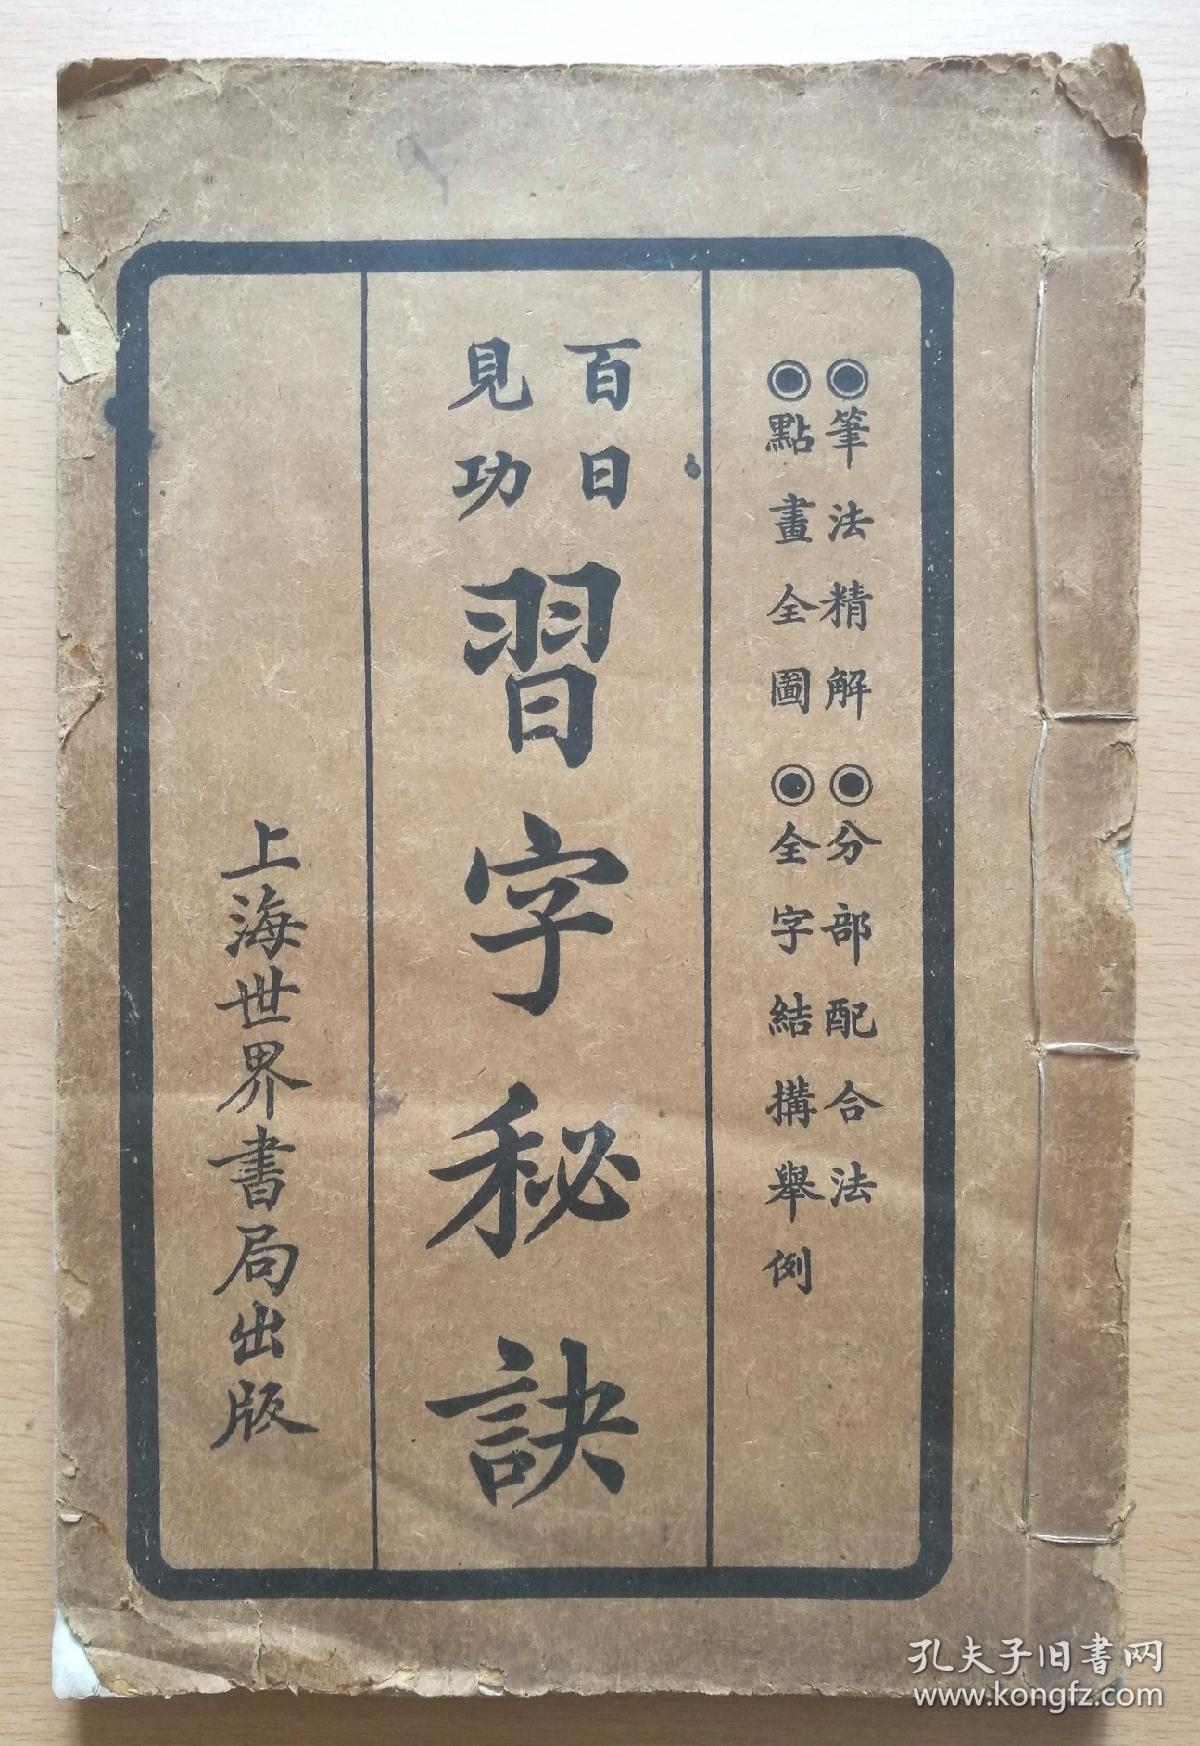 ◉筆法精解◉分部配合法
◉點畫全圖◉全字結搆舉例
百日
見功
習字秘訣
上海世界書局出版
孔夫子旧書网
www.kongfz.com